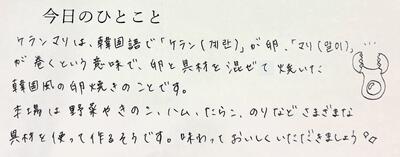 今日のひとこと
ケランマリは、韓国語で「ケラン(계란)」が卵、「マリ(말이)」
が巻くという意味で、卵と具材を混ぜて焼いた
韓国風の卵焼きのことです。
本場は野菜やきのこ、ハム、たらこ、のりなどさまざまな
具材を使って作るそうです。味わっておいしくいただきましょう